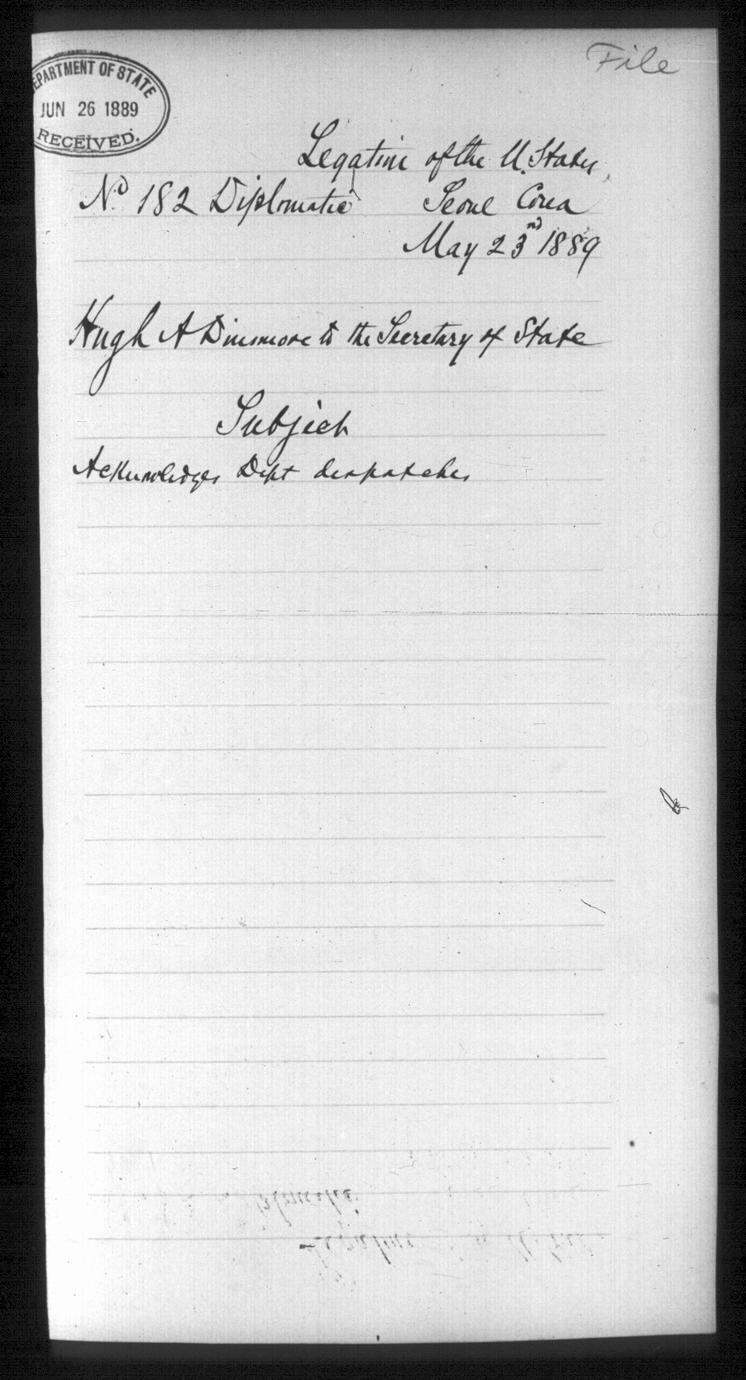 File
DEPARTMENT OF STATE
JUN 26 1889
RECEIVED.
Legation of the U. States,
No 182 Diplomatic Seoul Corea
May 23rd 1889
Hugh A Dinsmore to the Secretary of State
Subject
Acknowledges Dept despatches